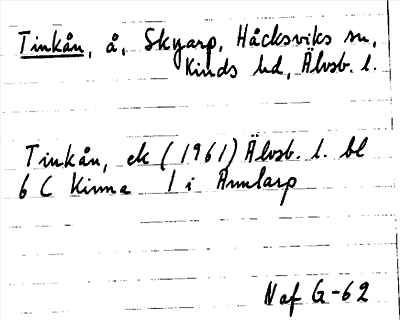 Tinkån, å, Skyarp, Håcksviks sn,
Kinds hd, Älvsb. l.
Tinkån, ek (1961) Älvsb. l. bl
6 C Kinna 1 i Annlarp
Naf G-62